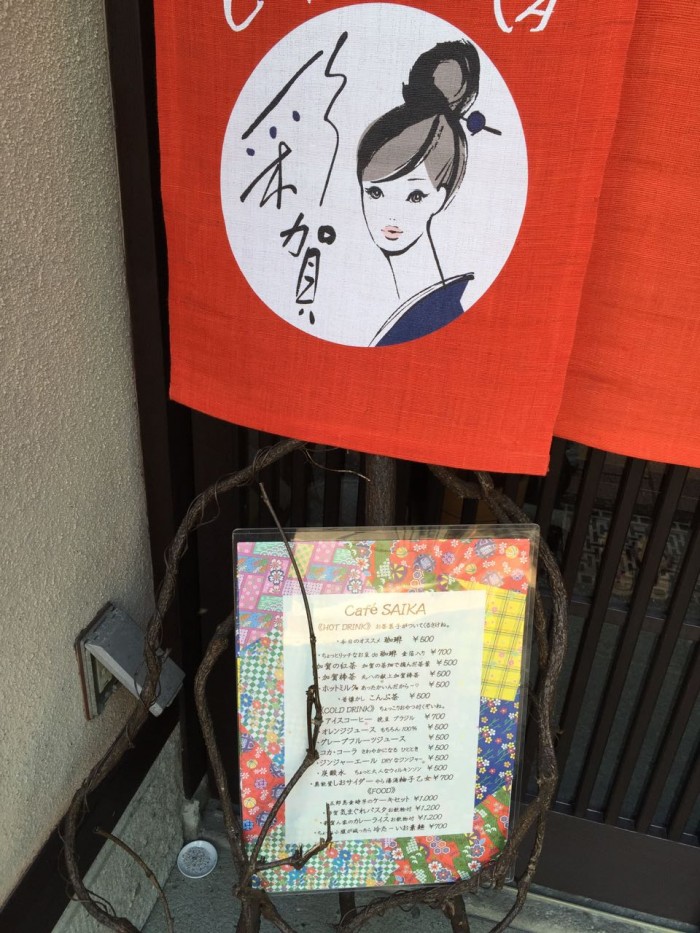 彩賀
Café SAIKA
《HOT DRINK》 お茶菓子がついてくるさけね。
・今日のオススメ 珈琲 ￥500
・ちょっとリッチなお豆 de 珈琲 金箔入り ￥700
加賀の紅茶 加賀の茶畑で摘んだ茶葉 ￥500
加賀棒茶 丸八の献上加賀棒茶 ￥500
・ホットミルク あったかいんだから～♪ ￥500
・昔懐かし こんぶ茶 ￥500
《COLD DRINK》 ちょっこりおやつ付くぞいね。
・アイスコーヒー 豆 ブラジル ￥700
オレンジジュース もちろん 100% ￥500
・グレープフルーツジュース ￥500
コカ・コーラ さわやかになる ひととき ￥500
・ジンジャーエール DRYなジンジャー ￥500
・炭酸水 ちょっと大人なウィルキンソン ￥500
奥能登しおサイダー から 湯涌柚子乙女 ￥700
《FOOD》
のケーキセット ￥1,000
気まぐれパスタ お飲物付 ￥1,200
人家のカレーライス お飲物付 ￥1,200
小腹が減ったら 冷たーいお素麺 ￥700